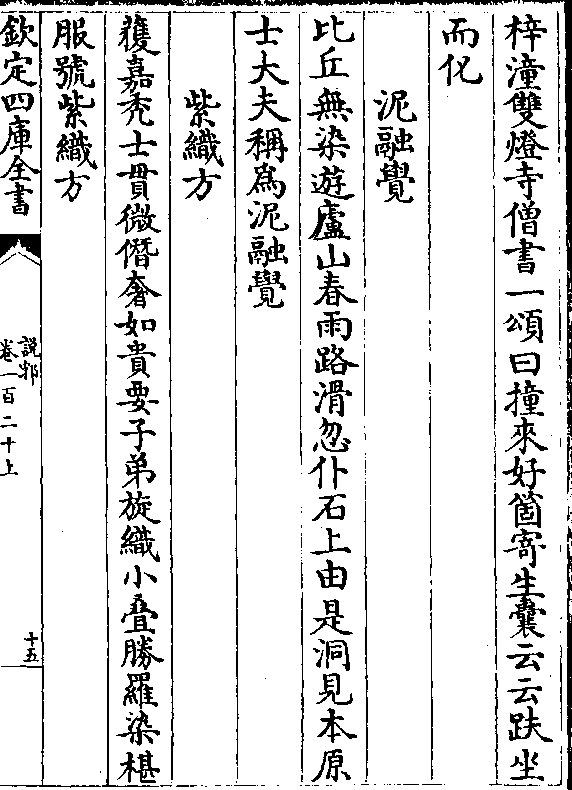 梓潼雙燈寺僧書一頌曰撞來好箇寄生囊云云趺坐
而化
泥融覺
比丘無染遊廬山春雨路滑忽仆石上由是洞見本原
士大夫稱為泥融覺
紫織方
獲嘉禿士貫微僭奢如貴要子弟旋織小疊勝羅染椹
服號紫織方
欽定四庫全書
說郛
卷一百二十上
十五